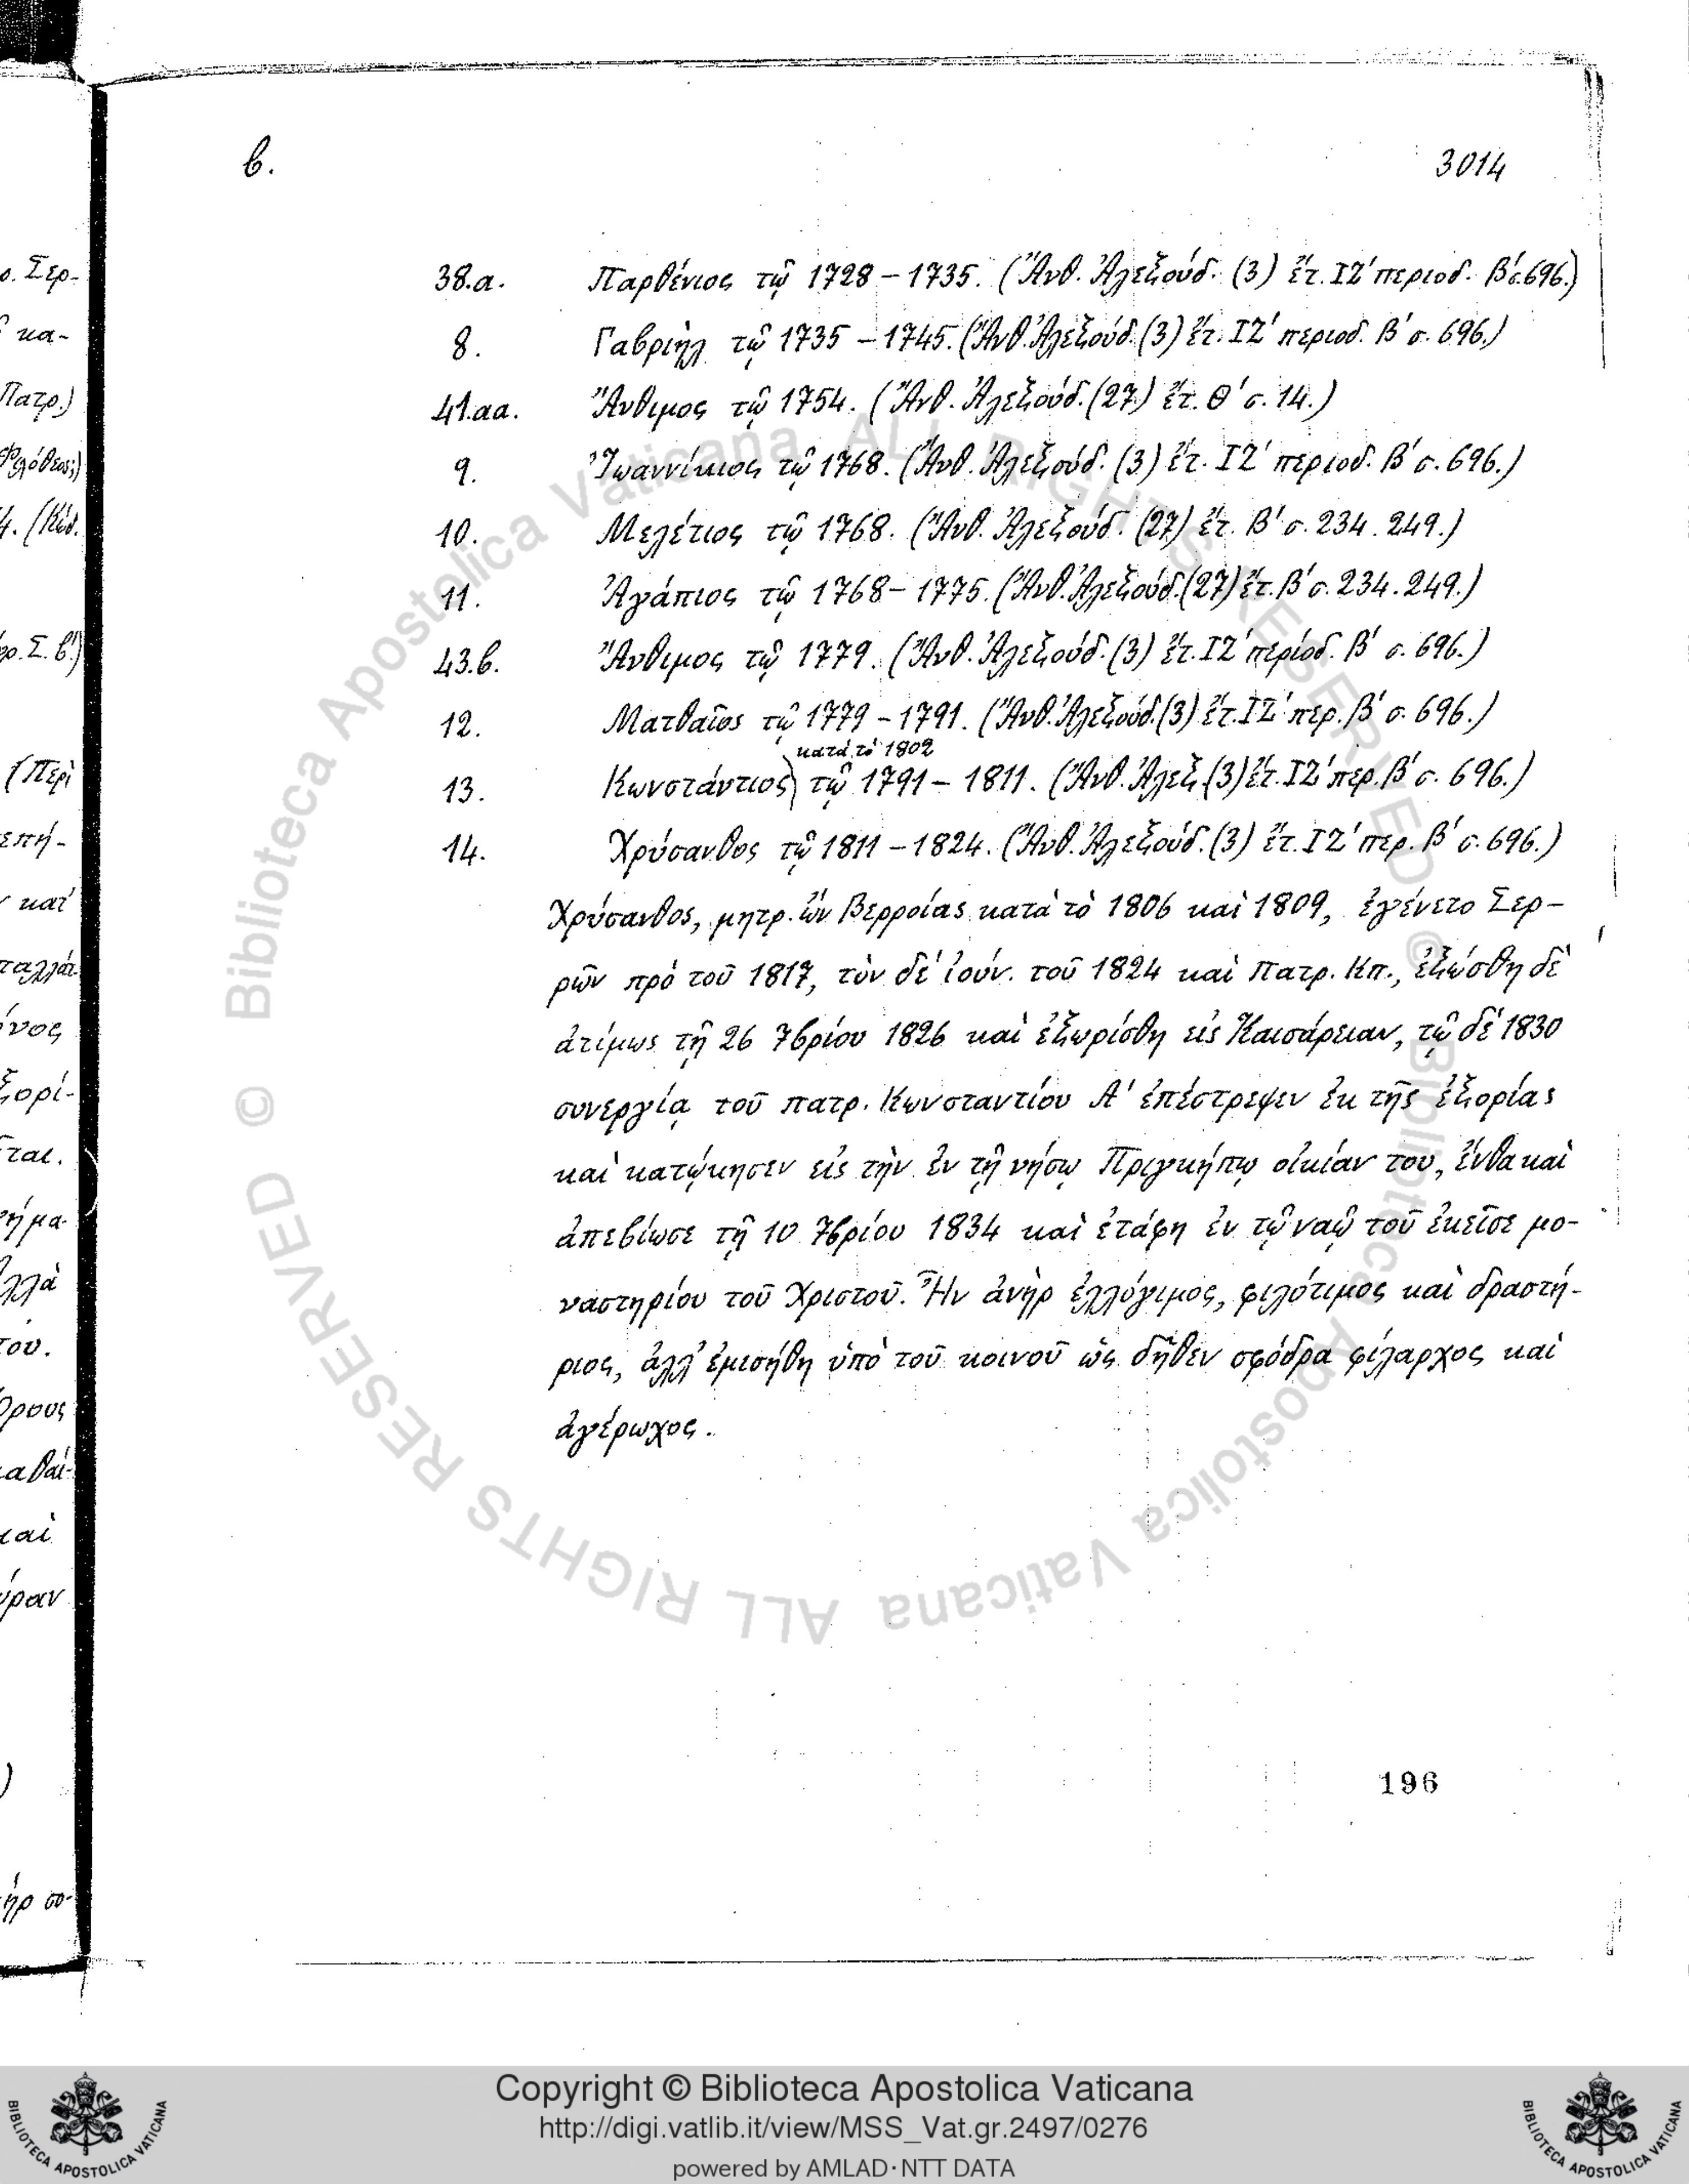 β. 3014
38.α. Παρθένιος τῷ 1728 – 1735. (Ἀνθ. Ἀλεξούδ. (3) ἔτ. ΙΖ΄ περιοδ. Β΄ σ. 696.)
8. Γαβριὴλ τῷ 1735 – 1745. (Ἀνθ. Ἀλεξούδ. (3) ἔτ. ΙΖ΄ περιοδ. Β΄ σ. 696.)
41.αα. Ἄνθιμος τῷ 1754. (Ἀνθ. Ἀλεξούδ. (27) ἔτ. Θ΄ σ. 14.)
9. Ἰωαννίκιος τῷ 1768. (Ἀνθ. Ἀλεξούδ. (3) ἔτ. ΙΖ΄ περιοδ. Β΄ σ. 696.)
10. Μελέτιος τῷ 1768. (Ἀνθ. Ἀλεξούδ. (27) ἔτ. Β΄ σ. 234. 249.)
11. Ἀγάπιος τῷ 1768 – 1775. (Ἀνθ. Ἀλεξούδ. (27) ἔτ. Β΄ σ. 234. 249.)
43.β. Ἄνθιμος τῷ 1779. (Ἀνθ. Ἀλεξούδ. (3) ἔτ. ΙΖ΄ περίοδ. Β΄ σ. 696.)
12. Ματθαῖος τῷ 1779 – 1791. (Ἀνθ. Ἀλεξούδ. (3) ἔτ. ΙΖ΄ περ. Β΄ σ. 696.)
κατὰ τὸ 1802
13. Κωνστάντιος) τῷ 1791 – 1811. (Ἀνθ. Ἀλεξ. (3) ἔτ. ΙΖ΄ περ. Β΄ σ. 696.)
14. Χρύσανθος τῷ 1811 – 1824. (Ἀνθ. Ἀλεξούδ. (3) ἔτ. ΙΖ΄ περ. Β΄ σ. 696.)
Χρύσανθος, μητρ. ὢν Βερροίας κατὰ τὸ 1806 καὶ 1809, ἐγένετο Σερ-
ρῶν πρὸ τοῦ 1817, τὸν δὲ ἰούν. τοῦ 1824 καὶ πατρ. Κπ., ἐξώσθη δὲ
ἀτίμως τῇ 26 7βρίου 1826 καὶ ἐξωρίσθη εἰς Καισάρειαν, τῷ δὲ 1830
συνεργίᾳ τοῦ πατρ. Κωνσταντίου Α΄ ἐπέστρεψεν ἐκ τῆς ἐξορίας
καὶ κατῴκησεν εἰς τὴν ἐν τῇ νήσῳ Πριγκήπῳ οἰκίαν του, ἔνθα καὶ
ἀπεβίωσε τῇ 10 7βρίου 1834 καὶ ἐτάφη ἐν τῷ ναῷ τοῦ ἐκεῖσε μο-
ναστηρίου τοῦ Χριστοῦ. Ἦν ἀνὴρ ἐλλόγιμος, φιλότιμος καὶ δραστή-
ριος, ἀλλ' ἐμισήθη ὑπὸ τοῦ κοινοῦ ὡς δῆθεν σφόδρα φίλαρχος καὶ
ἀγέρωχος.
196
© Biblioteca Apostolica Vaticana ALL RIGHTS RESERVED © Biblioteca Apostolica Vaticana ALL RIGHTS RESERVED
Copyright © Biblioteca Apostolica Vaticana
http://digi.vatlib.it/view/MSS_Vat.gr.2497/0276
powered by AMLAD·NTT DATA
BIBLIOTECA APOSTOLICA VATICANA
BIBLIOTECA APOSTOLICA VATICANA